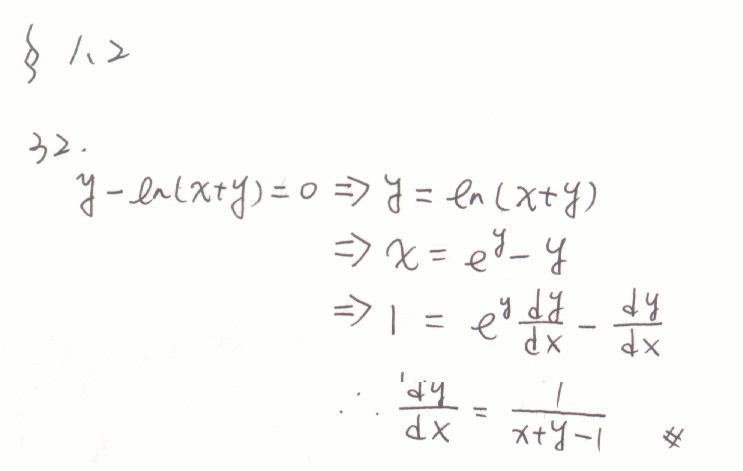 § 1.2
32.
y - ln(x+y) = 0 ⇒ y = ln(x+y)
⇒ x = e^y - y
⇒ 1 = e^y dy/dx - dy/dx
∴ dy/dx = 1/(x+y-1) #